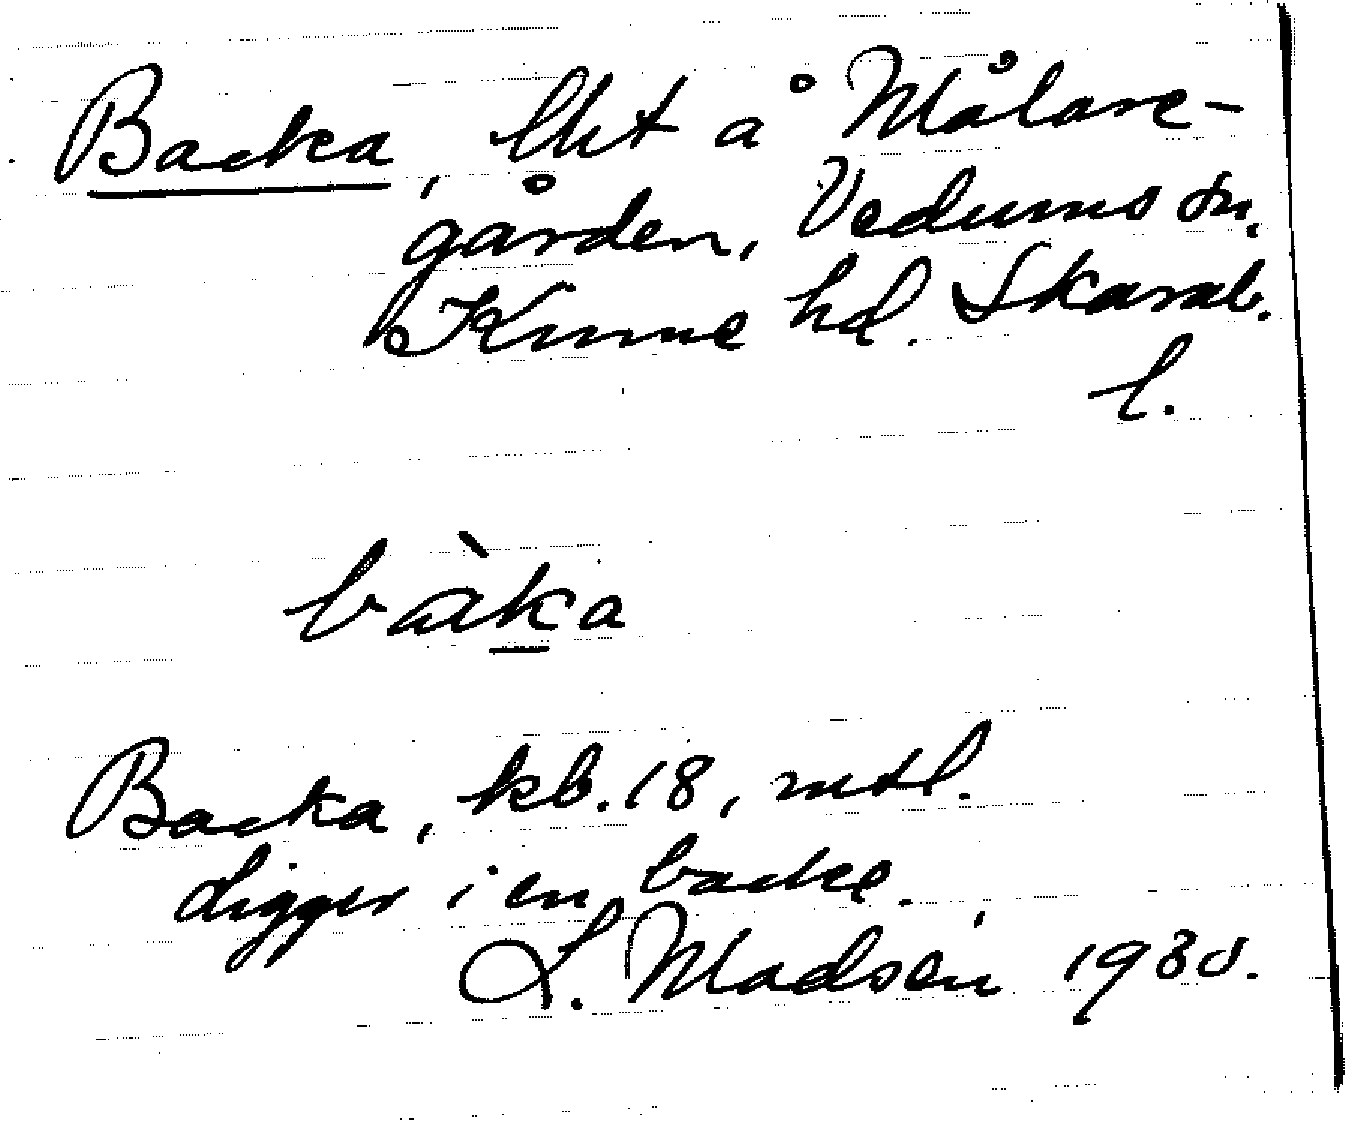 Backa, lht å Målare-
gården, Vedums sn,
Kinne hd. Skarab.
l.
bàka
Backa, kb. 18, mtl.
Ligger i en backe.
L. Madsén 1930.